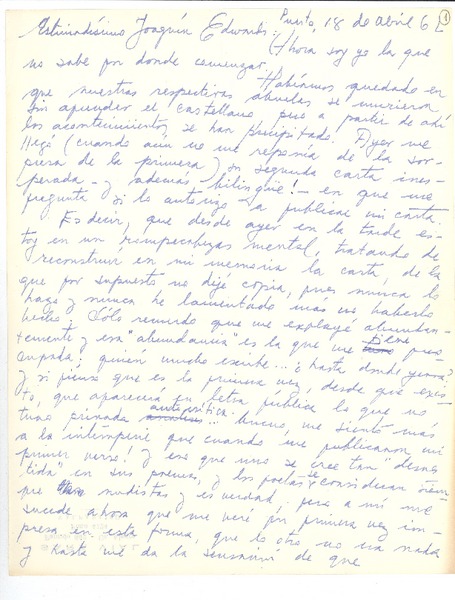 Punito, 18 de abril 62
1
Estimadísimo Joaquín Edwards: (Ahora soy yo la que
no sabe por donde comenzar.
Habíamos quedado en
que nuestras respectivas abuelas se murieron
sin aprender el castellano, pero a partir de ahí
los acontecimientos se han precipitado. Ayer me
llegó (cuando aun no me reponía de la sor-
presa de la primera) su segunda carta ines-
perada - y además bilingüe! - en que me
pregunta si lo autorizo a publicar mi carta.
Es decir, que desde ayer en la tarde es-
toy en un rompecabezas mental, tratando de
reconstruir en mi memoria la carta, de la
que por supuesto no dejé copia, pues nunca lo
hago y nunca he lamentado más no haberlo
hecho. Sólo recuerdo que me explayé abundan-
temente y esa "abundancia" es la que me tiene preo-
cupada; quien mucho escribe... ¿hasta donde yerra?
Y si pienso que es la primera vez, desde que exis-
to, que aparecerá en letra pública lo que no
tuvo privada autocrítica... bueno, me siento más
a la intemperie que cuando me publicaron mi
primer verso! Y eso que uno se cree tan "desves-
tida" en sus poemas, y los poetas se consideran siem-
pre nudistas y es verdad: pero a mí me
sucede ahora que me veré por primera vez im-
presa en esta forma, que lo otro no era nada
y hasta me da la sensación de que